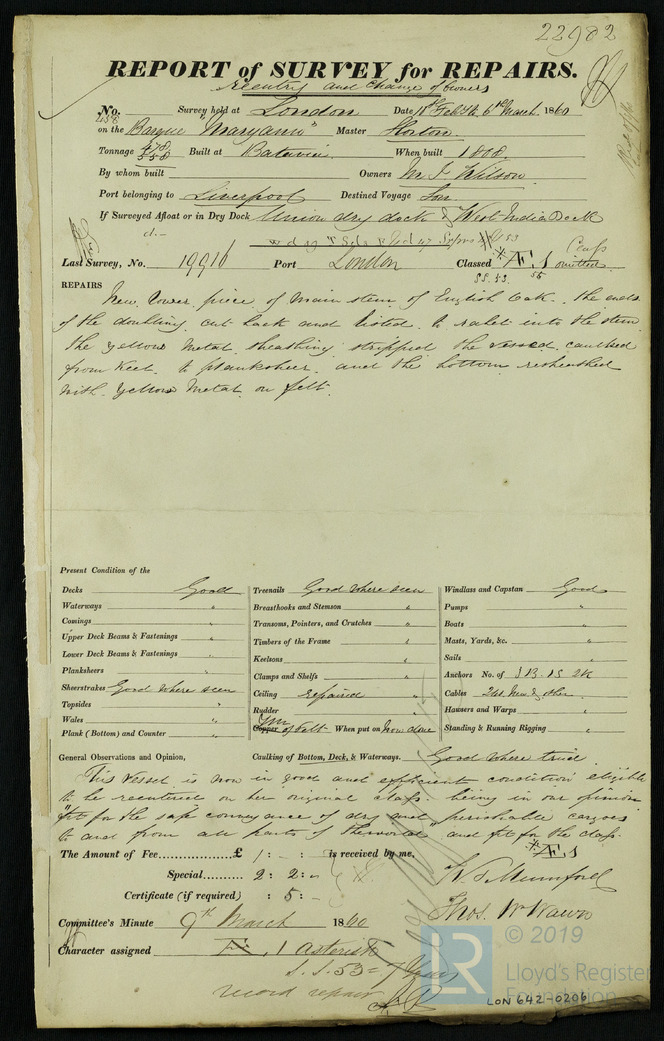 22982
REPORT of SURVEY for REPAIRS.
Reentry and change of Owners
No. 258 Survey held at London Date 11th Feb to 6th March 1860
on the Barque "Maryann" Master Horton
Tonnage 478 558 Built at Batavia When built 1808.
By whom built Owners M J Wilson
Port belonging to Liverpool Destined Voyage
If Surveyed Afloat or in Dry Dock Union dry dock & West India Dock
Last Survey, No. 19916 Port London Classed Æ 1 Class omitted
SS. 53. 55
REPAIRS New lower piece of main stem of English Oak. The ends
of the doubling cut back and listed to rabet into the stem
the yellow metal sheathing stripped the vessel caulked
from Keel to planksheer and the bottom resheathed
with yellow metal on felt.
Present Condition of the
Decks Good
Waterways "
Comings "
Upper Deck Beams & Fastenings "
Lower Deck Beams & Fastenings "
Planksheers "
Sheerstrakes Good where seen
Topsides "
Wales "
Plank (Bottom) and Counter "
Treenails Good where seen
Breasthooks and Stemson "
Transoms, Pointers, and Crutches "
Timbers of the Frame "
Keelsons "
Clamps and Shelfs "
Ceiling repaired
Rudder
Copper YM of Felt When put on now done
Windlass and Capstan Good
Pumps "
Boats "
Masts, Yards, &c. "
Sails "
Anchors No. of 3 B. 1 S 2 K
Cables
Hawsers and Warps "
Standing & Running Rigging "
General Observations and Opinion, Caulking of Bottom, Deck, & Waterways. Good where tried
This vessel is now in good and efficient condition eligible
to be reentered on her original class being in our opinion
"fit for the safe conveyance of dry and perishable cargoes
to and from all parts of the world" and fit for the class
* Æ 1
The Amount of Fee £ 1 : : is received by me,
Special 2 : 2 : -
Certificate (if required) : 5 : -
Committee's Minute 9th March 1860
Character assigned Æ, 1 asterisk
S. S. 53 = 7 Years
record repairs
Thos. W Wawn
© 2019
LR
Lloyd's Register
Foundation
LON 642-0206